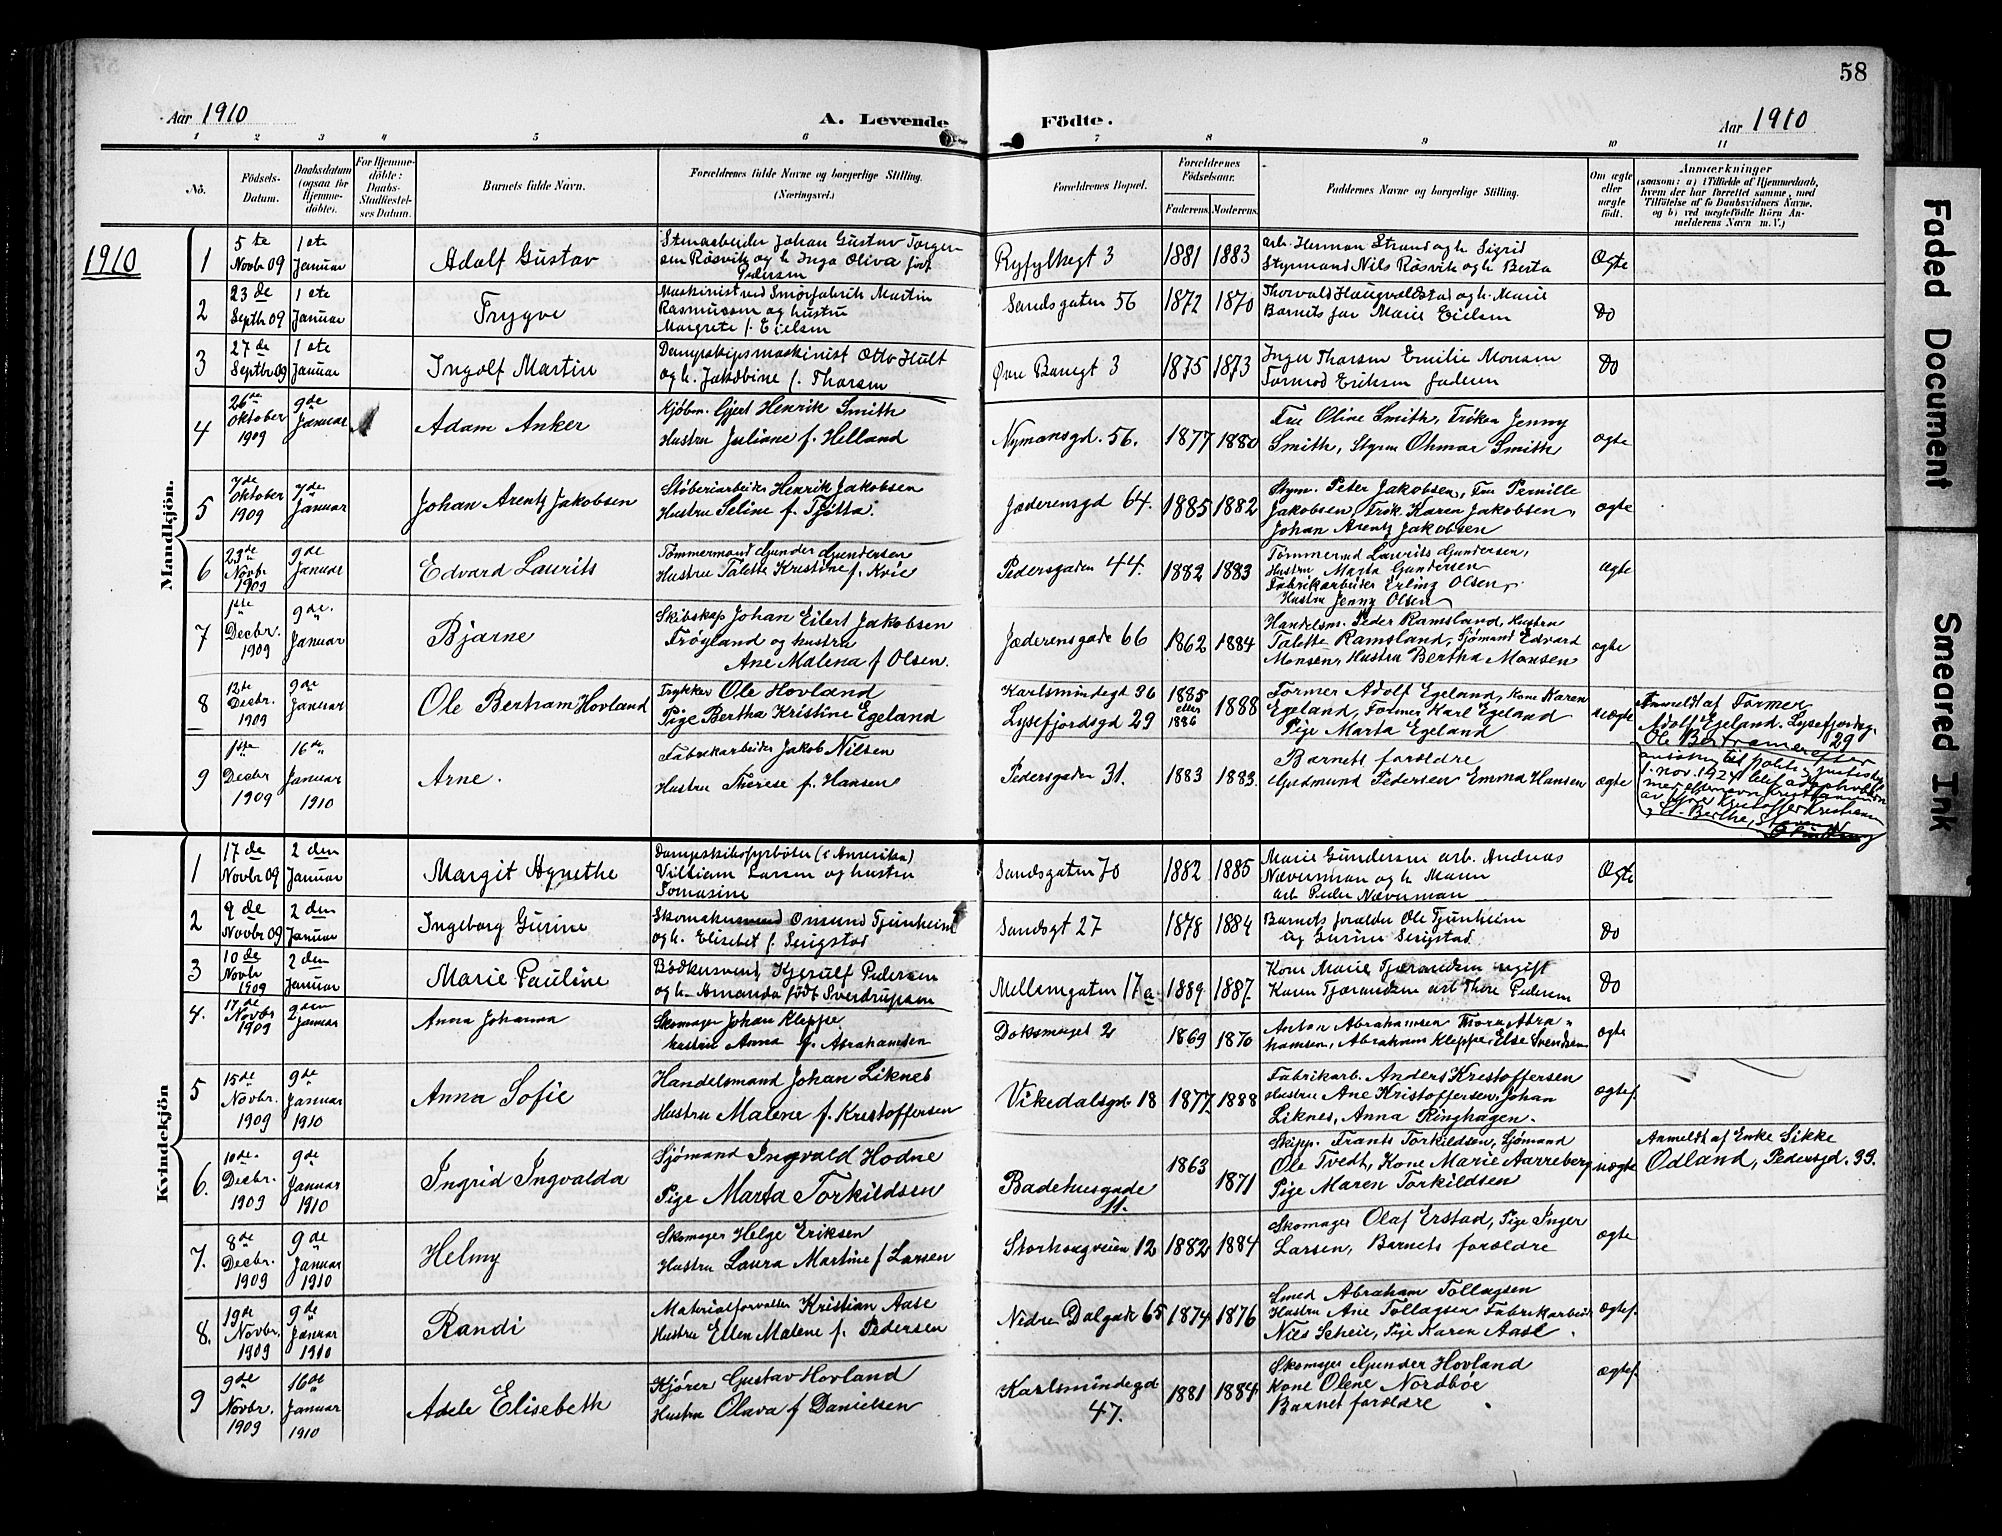 58
Aar 1910
A. Levende Födte.
Aar 1910
1 2 3 4 5 6 7 8 9 10 11
No.
Födsels-
Datum.
Daabsdatum
(ogsaa for
Hjemme-
döbte).
For Hjemme-
döbte:
Daabs-
Stadfæstel-
ses Datum.
Barnets fulde Navn.
Forældrenes fulde Navne og borgerlige Stilling.
(Næringsvei.)
Forældrenes Bopæl.
Forældrenes
Födselsaar.
Faderens. Moderens.
Faddernes Navne og borgerlige Stilling.
Om ægte
eller
uægte
født.
Anmærkninger
(saasom: a) i Tilfælde af Hjemmedaab,
hvem der har forrettet samme, med
Tilföielse af to Daabsvidners Navne.
og b) ved uægtefödte Börn An-
melderens Navn m. V.)
1910
Mandkjön.
1
5 te
Novbr 09
1 ste
Januar
Adolf Gustav
Stenarbeider Johan Gustav Torger
sen Røsvik og h. Inga Oliva født
Pedersen
Ryfylkegt 3
1881 1883
arb. Herman Strand og h. Sigrid
Styrmand Nils Røsvik og h. Berta
Ægte
2
23 de
Septb 09
1 ste
Januar
Trygve
Maskinist ved Smørfabrik Martin
Rasmussen og hustru
Margrete f. Eielsen
Sandsgaten 56
1872 1870
Thorvald Haugvaldstad og h. Marie
Barnets far Marie Eielsen
Do
3
27 de
Septbr 09
1 ste
Januar
Ingolf Martin
Dampskipsmaskinist Otto Hult
og h. Jakobine f. Thorsen
Øvre Banegt 3
1875 1873
Inger Thorsen Emilie Monsen
Tormod Eriksen faderen
Do
4
26 de
Oktober
1909
9de
Januar
Adam Anker
Kjøbm. Gjert Henrik Smith
Hustru Juliane f. Helland
Nymansgd. 56.
1877 1880
Fru Oline Smith, Frøken Jenny
Smith, Styrm Ohmar Smith
ægte
5
7de
Oktober
1909
7de
Januar
Johan Arentz Jakobsen
Støberiarbeider Henrik Jakobsen
Hustru Seline f. Tjøtta.
Jæderensgd 64.
1885 1882
Stym. Peter Jakobsen, Fru Pernille
Jakobsen, Frøk. Karen Jakobsen,
Johan Arentz Jakobsen
ægte
6
23de
Novbr
1909
9de
Januar
Edvard Laurits
Tømmermand Gunder Gundersen
Hustru Talette Kristine f. Kvie
Pedersgaden 44.
1882 1883
Tømmermd Laurits Gundersen,
Hustru Magta Gundersen
Fabrikarbeider Erling Olsen,
Hustru Jenny Olsen
ægte
7
1ste
Decbr.
1909
9de.
Januar
Bjarne
Skibskap Johan Eilert Jakobsen
Frøyland og hustru
Ane Malena f Olsen.
Jæderensgade 66
1862 1884
Handelsm. Peder Ramsland, Hustru
Talette Ramsland, Sjømand Edvard
Monsen, Hustru Bertha Monsen
ægte
8
12te
Decbr.
1909
9de
Januar
Ole Bertram Hovland
Trykker Ole Hovland
Pige Bertha Kristine Egeland
Karlsmindegt 36
Lysefjordsgd 29
1885
eller
1886
1888
Former Adolf Egeland, Kone Karen
Egeland, Former Karl Egeland
Pige Marta Egeland
uægte
Anmeldt af Former
Adolf Egeland. Lysefjordsg.
29
9
1ste
Decbr
1909
16de
Januar
1910
Arne.
Fabrikarbeider Jakob Nilsen
Hustru Therese f. Hansen
Pedersgaden 31.
1883 1883
Barnets forældre
Gudmund Pedersen Emma Hansen
ægte
Kvindekjön
1
17 de
Novbr 09
2 den
Januar
Margit Agnethe
Dampskibsfyrbøter (i Amerika)
Villiam Larsen og hustru
Tomasine
Sandsgaten 70
1882 1885
Marie Gundersen arb. Andreas
Næverman og h. Maren
arb Peder Næverman
Ægte
2
9 de
Novbr 09
2 den
Januar
Ingeborg Gurine
Skomakersvend Omund Tjunheim
og h. Elisebet f. Serigstad
Sandsgt 27
1878 1884
Barnets foralder Ole Tjunheim
og Gurine Serigstad
Do
3
10 de
Novbr
1909
2 den
Januar
Marie Pauline
Bødkersvend Kjerulf Pedersen
og h. Amanda født Sverdrupsen
Mellemgaten 17 a
1889 1887.
Kone Marie Tjærandsen ugift
Karen Tjærandsen arb Thore Pedersen
Do
4.
17de
Novbr
1909
2den
Januar
Anna Johanna
Skomager Johan Kleppe,
hustru Anna f. Abrahamsen
Doksmuget 2
1869 1870
Anton Abrahamsen Thora Abra„
hamsen, Abraham Kleppe, Else Svendsen
ægte
5
15de
Novbr.
1909
9de
Januar
1910
Anna Sofie
Handelsmand Johan Liknes
Hustru Malene f. Kristoffersen
Vikedalsgd. 18
1877. 1888
Fabrikarb. Anders Kristoffersen
Hustru Ane Kristoffersen, Johan
Liknes, Anna Ringhagen.
ægtef.
6.
10de.
Decbr.
1909
9de
Januar
1910
Ingrid Ingvalda
Sjømand Ingvald Hodne
Pige Marta Torkildsen
Badehusgade
11.
1863
1871
Skipp. Frants Torkildsen, Sjømand
Ole Tvedt, Kone Marie Aarreberg
Pige Maren Torkildsen
uægte
Anmeldt af Enke Sikke
Odland, Pedersgd. 99.
7.
8de
Decbr.
1909
9de
Januar
1910
Helmy
Skomager Helge Eriksen
Hustru Laura Martine f Larsen
Storhougveien 12
1882 1884
Skomager Olaf Erstad, Pige Inger
Larsen, Barnets forældre
ægte
8.
19de
Novbr.
1909
9de
Januar
1910
Randi
Materialforvalter Kristian Aase
Hustru Ellen Malene f. Pedersen
Nedre Dalgade 65
1874 1876
Smed Abraham Tollagsen
Hustru Ane Tollagsen Fabrikarbeid
Nils Scheie, Pige Karen Aase.
ægtef.
9
9de
Novbr.
1909
16de
Januar
1910
Adele Elisebeth
Kjører Gustav Hovland
Hustru Olava f Danielsen
Karlsmindegd
47.
1881 1884
Skomager Gunder Hovland
Kone Olene Nordbøe
Barnet forældre
ægtef.
Faded Document
Smeared Ink